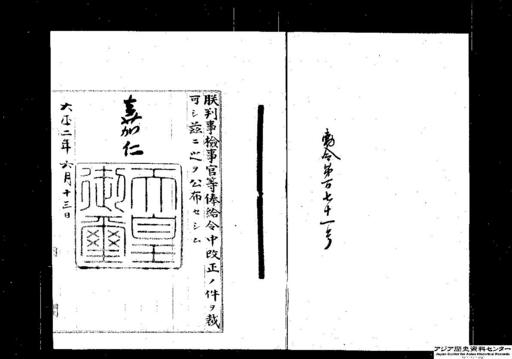 勅令第百七十一号
朕判事検事官等俸給令中改正ノ件ヲ裁
可シ茲ニ之ヲ公布セシム
嘉仁
天皇御璽
大正二年六月十三日
アジア歴史資料センター
Japan Center for Asian Historical Records